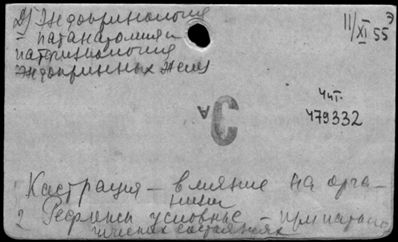 Д) Эндокринология
= патанатомия и
патфизиология
эндокринных желез
11/XI 55 Э
Чит.
479332
А С
1 Кастрация – влияние на орга-
низм
2 Рефлексы условные – при патоло-
гических состояниях